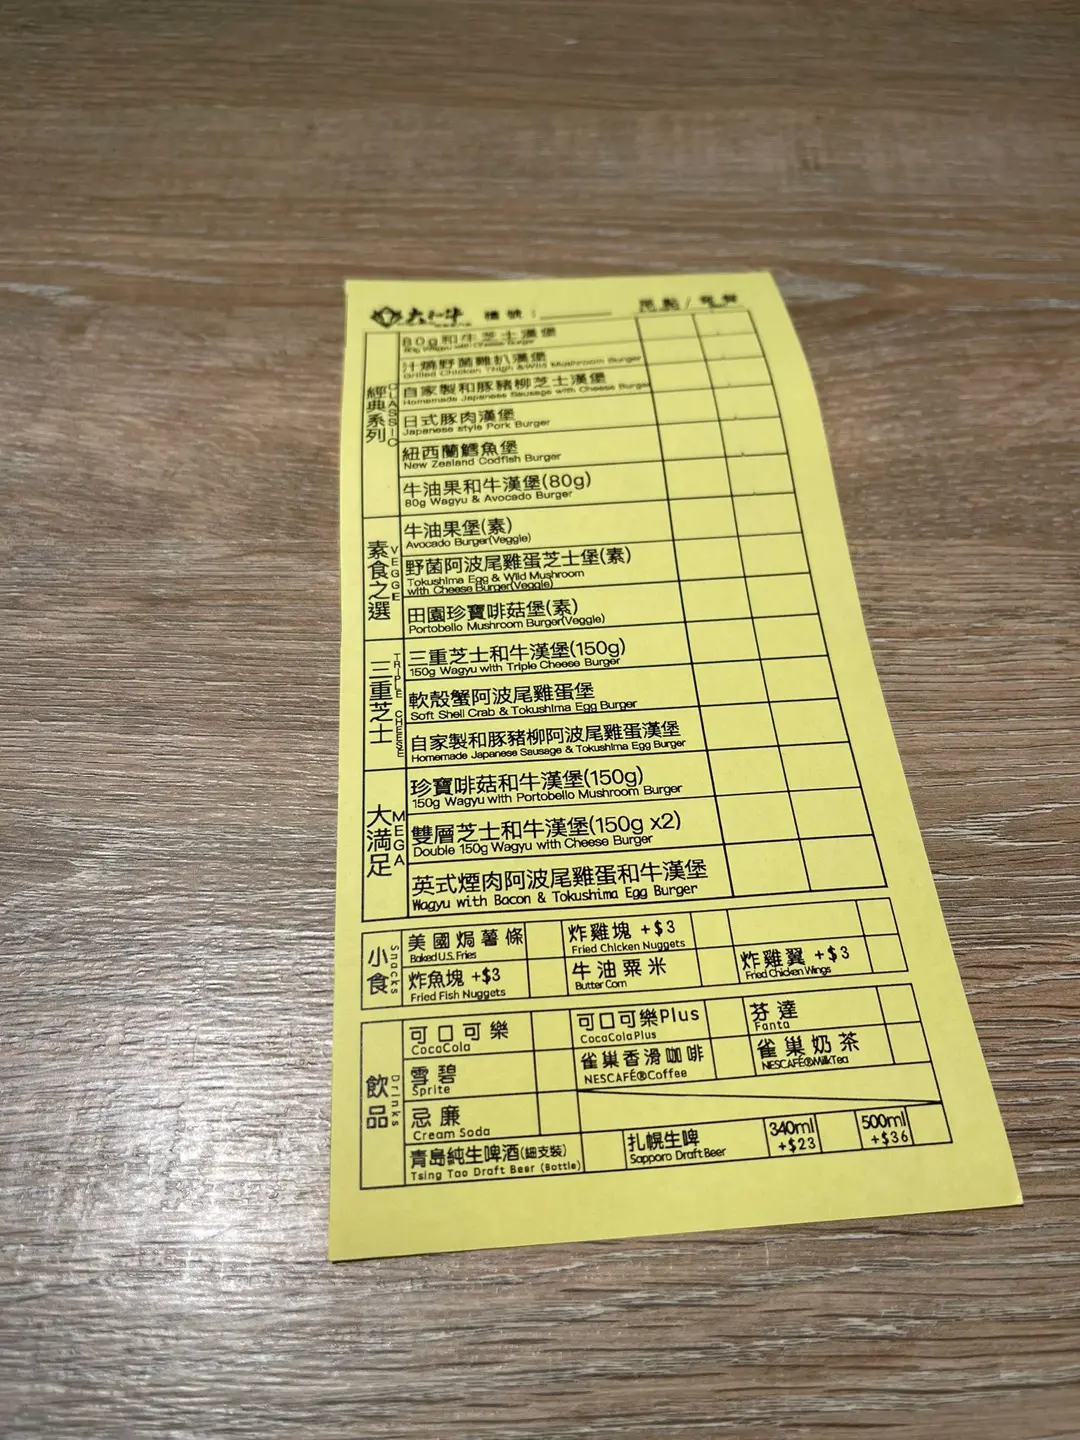 大和牛 檯號：
單點 / 套餐
經典系列 CLASSIC
80g和牛芝士漢堡
80g Wagyu with Cheese Burger
汁燒野菌雞扒漢堡
Grilled Chicken Thigh & Wild Mushroom Burger
自家製和豚豬柳芝士漢堡
Homemade Japanese Sausage with Cheese Burger
日式豚肉漢堡
Japanese style Pork Burger
紐西蘭鱈魚堡
New Zealand Codfish Burger
牛油果和牛漢堡(80g)
80g Wagyu & Avocado Burger
素食之選 VEGGE
牛油果堡(素)
Avocado Burger(Veggie)
野菌阿波尾雞蛋芝士堡(素)
Tokushima Egg & Wild Mushroom
with Cheese Burger(Veggie)
田園珍寶啡菇堡(素)
Portobello Mushroom Burger(Veggie)
三重芝士 TRIPLE CHEESE
三重芝士和牛漢堡(150g)
150g Wagyu with Triple Cheese Burger
軟殼蟹阿波尾雞蛋堡
Soft Shell Crab & Tokushima Egg Burger
自家製和豚豬柳阿波尾雞蛋漢堡
Homemade Japanese Sausage & Tokushima Egg Burger
大滿足 MEGA
珍寶啡菇和牛漢堡(150g)
150g Wagyu with Portobello Mushroom Burger
雙層芝士和牛漢堡(150g x2)
Double 150g Wagyu with Cheese Burger
英式煙肉阿波尾雞蛋和牛漢堡
Wagyu with Bacon & Tokushima Egg Burger
小食 Snacks
美國焗薯條
Baked U.S. Fries
炸雞塊 +$3
Fried Chicken Nuggets
炸魚塊 +$3
Fried Fish Nuggets
牛油粟米
Butter Corn
炸雞翼 +$3
Fried Chicken Wings
飲品 Drinks
可口可樂
CocaCola
可口可樂Plus
CocaCola Plus
芬達
Fanta
雪碧
Sprite
雀巢香滑咖啡
NESCAFÉ®Coffee
雀巢奶茶
NESCAFÉ®MilkTea
忌廉
Cream Soda
青島純生啤酒(細支裝)
Tsing Tao Draft Beer (Bottle)
扎幌生啤
Sapporo Draft Beer
340ml
+$23
500ml
+$36